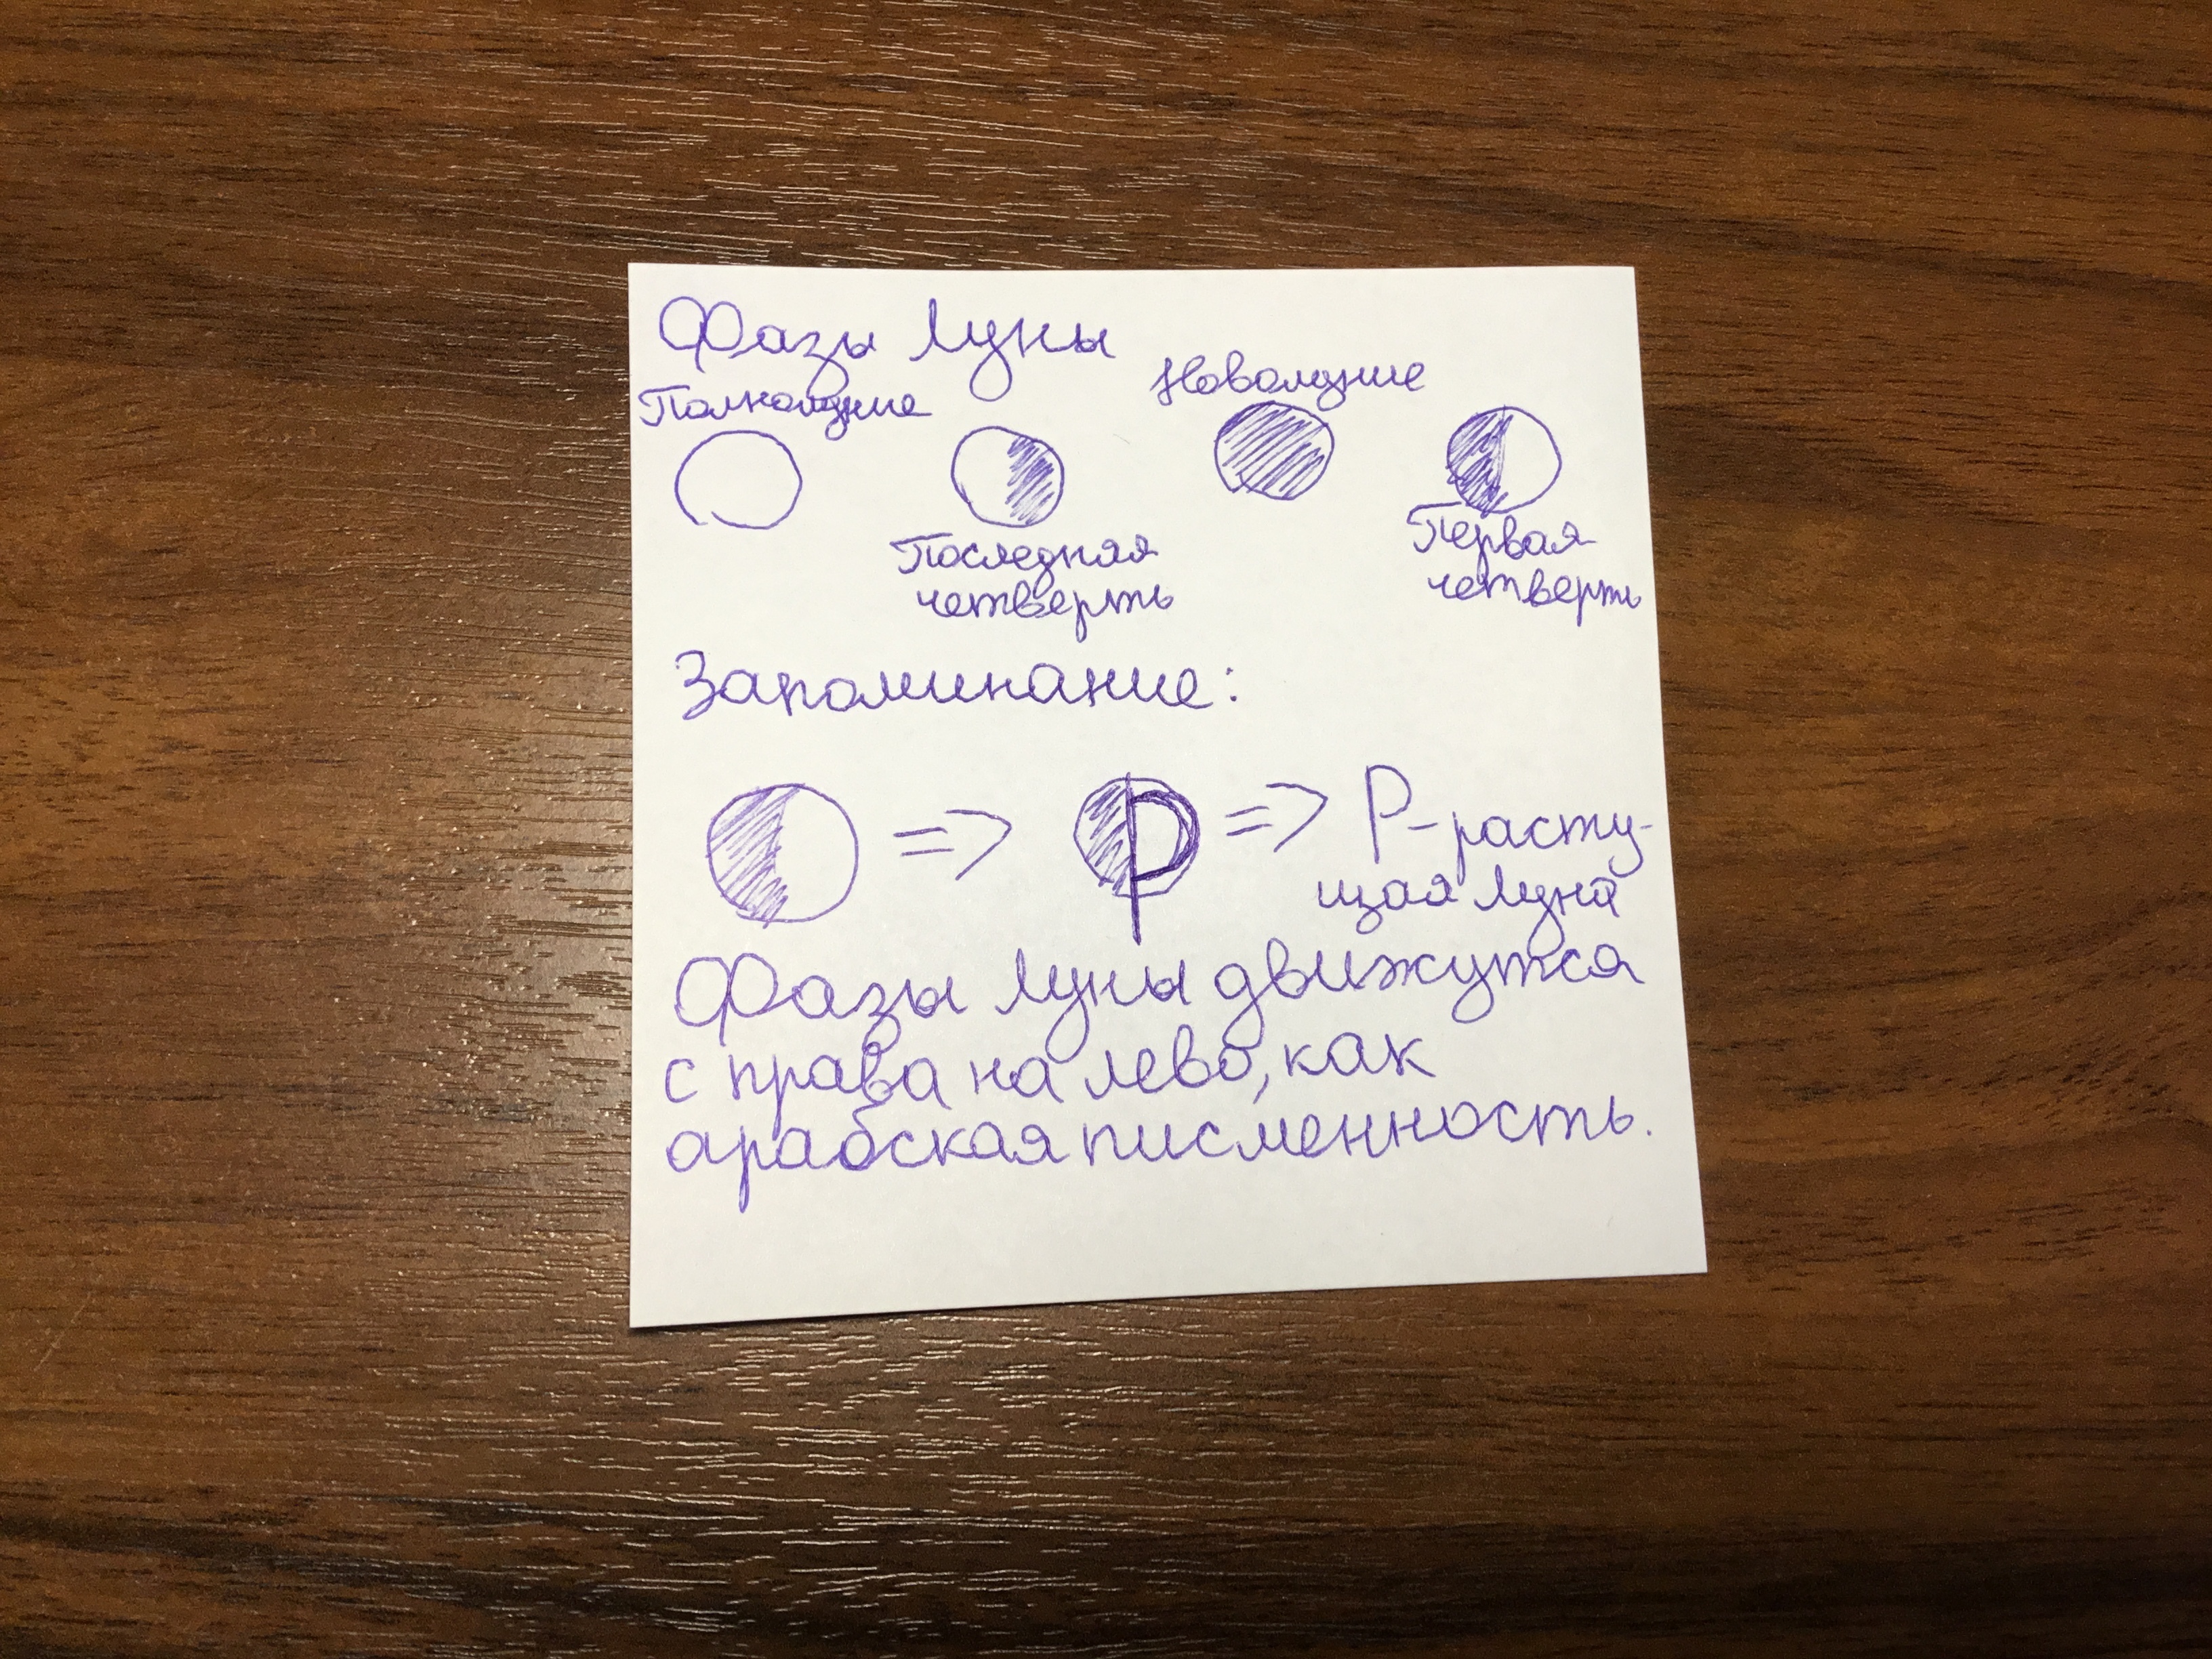 Фазы Луны
Полнолуние
Новолуние
Последняя
четверть
Первая
четверть
Запоминание:
=> P => Р-расту-
щая луна
Фазы Луны движутся
с права на лево, как
арабская писменность.